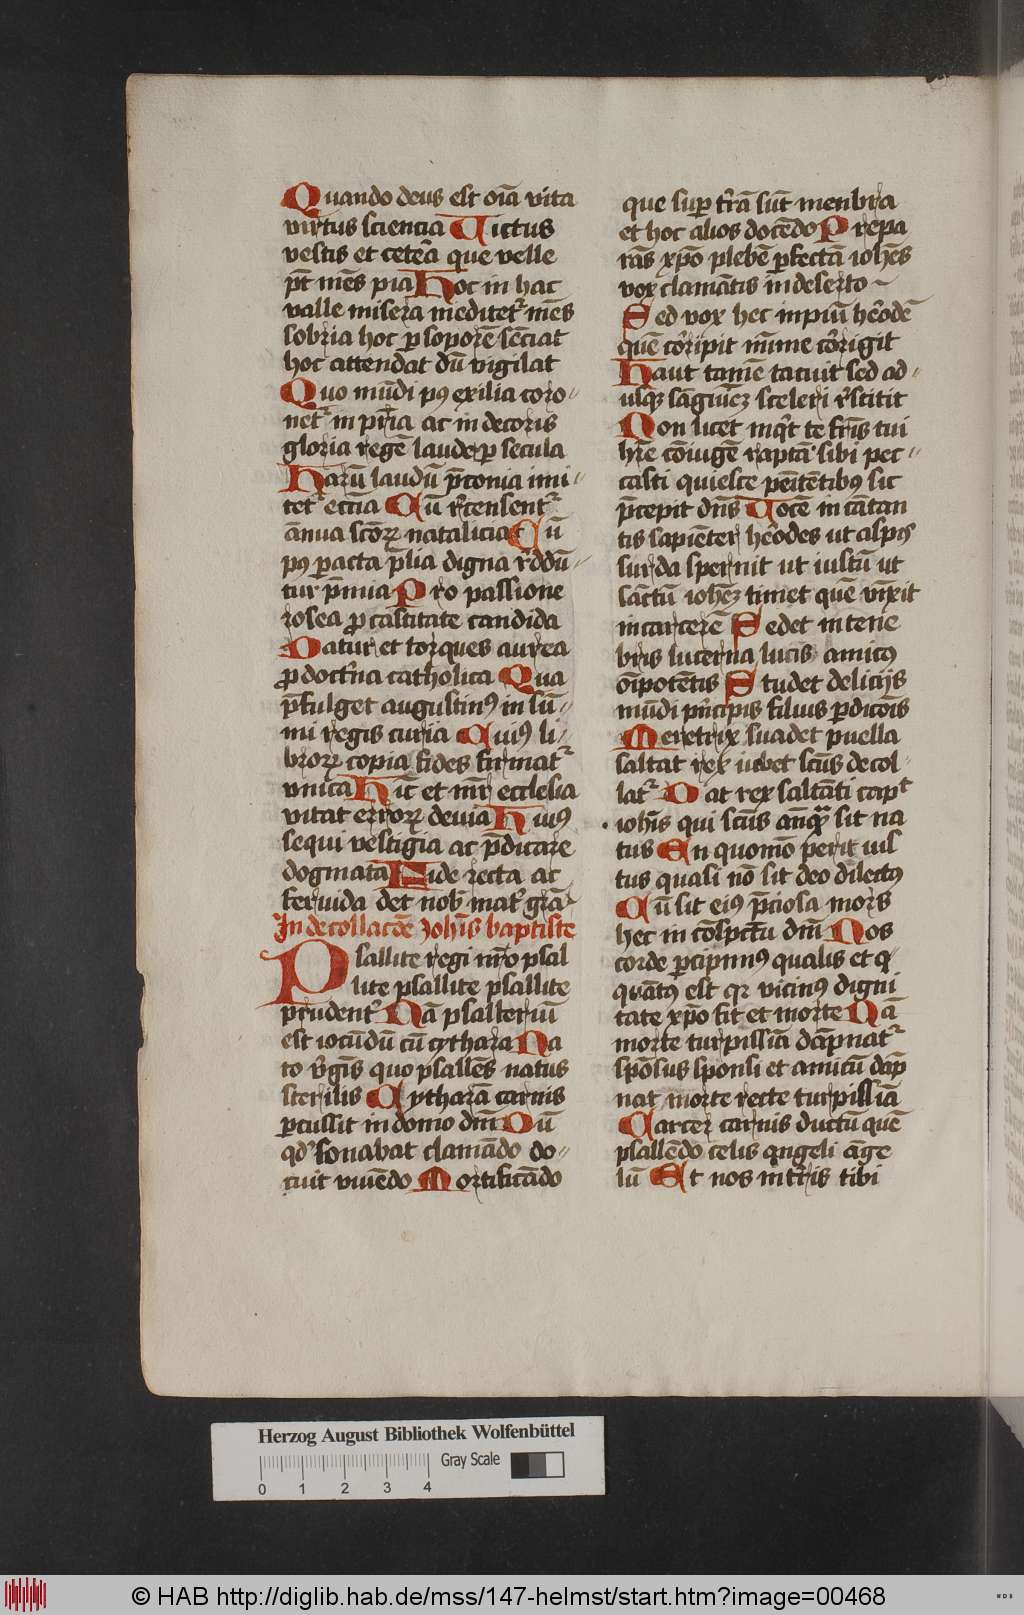 Quando deus est oīa vita
virtus sciencia Uictus
vestis et cetēa que velle
p̄t mēs pia Hoc in hac
valle misera meditetr mēs
sobria hoc p soporē sēciat
hoc attendat dū vigilat
Quo mūdi pꝰ exilia coro-
netr in pr̄ia ac in decoris
gloria regē laude p secula
Harū laudū p̄conia imi-
tetr ecc̄ia Cū rͨcensentr
ānua scōꝝ natalicia Cū
pꝰ pacta p̄lia digna rͩddū-
tur p̄mia Pro passione
rosea ꝓ castitate candida
Datur et torques aurea
ꝓ doctͥna catholica Qua
p̄fulget augustinꝰ in sū-
mi regis curia Cuiꝰ li-
broꝝ copia fides firmatr
vnica Hīc et mr̄ ecclesia
vitat erroꝝ deuia Huiꝰ
sequi vestigia ac p̄dicare
dogmata Fide recta ac
feruida det nob̄ matr grā
In decollacōe Johīs baptiste
Psallite regi nr̄o psal
lite psallite psallite
prudentr Nā psalteriū
est iocūdū cū cythara Na
to vͥgīs quo psallēs natus
sterilis Cytharā carnis
ꝑcussit in domo dn̄i Dū
qd̓ sonabat clamādo do-
cuit viuēdo Mortificādo
que suꝑ tr̄ā sūt menbra
et hoc alios docēdo Prepa
rās xpō plebē ꝑfectā iohēs
vox clamātis in deserto
Sed vox hec inpiū hērodē
quē cōripit mīme cōrigit
Haut tamē tacuit sed ad-
usqꝫ sāguīeꝫ sceleri rͨstitit
Non licet inqͥt te frīs tui
hr̄e cōiugē raptā sibi pec-
casti quiesce penitētibꝰ sic
p̄cepit dn̄s Uocē in cātan
tis sapiēter hērodes ut aspis
surda spernit ut iustū ut
sāctū iohēꝫ timet quē vīxit
in carcerē Sedet in tene
bris lucerna lucis amicꝰ
oīpotētis Studet delicijs
mūdi pͥncipis filius ꝑdicōis
Meretrix suadet puella
saltat rex iubet scūs decol-
latr Dat rex saltāti capͭ
iohīs qui scūs anqͣꝫ sit na
tus En quomō perit ius
tus quasi nō sit deo dilectꝰ
Cū sit eiꝰ p̄ciosa mors
hec in cōspctū dn̄i Nos
corde ꝑcipimꝰ qualis et q̄
quātꝰ est qͥ vicinꝰ digni
tate xpō fit et morte Nā
morte turpissīa dāpnatr
spōsus sponsi et amicū dāp
nat morte recte turpissiā
Carcer carnis ductū quē
psallēdo celis angeli āge
lū Et nos in tr̄is tibi
Herzog August Bibliothek Wolfenbüttel
Gray Scale
0 1 2 3 4
© HAB http://diglib.hab.de/mss/147-helmst/start.htm?image=00468